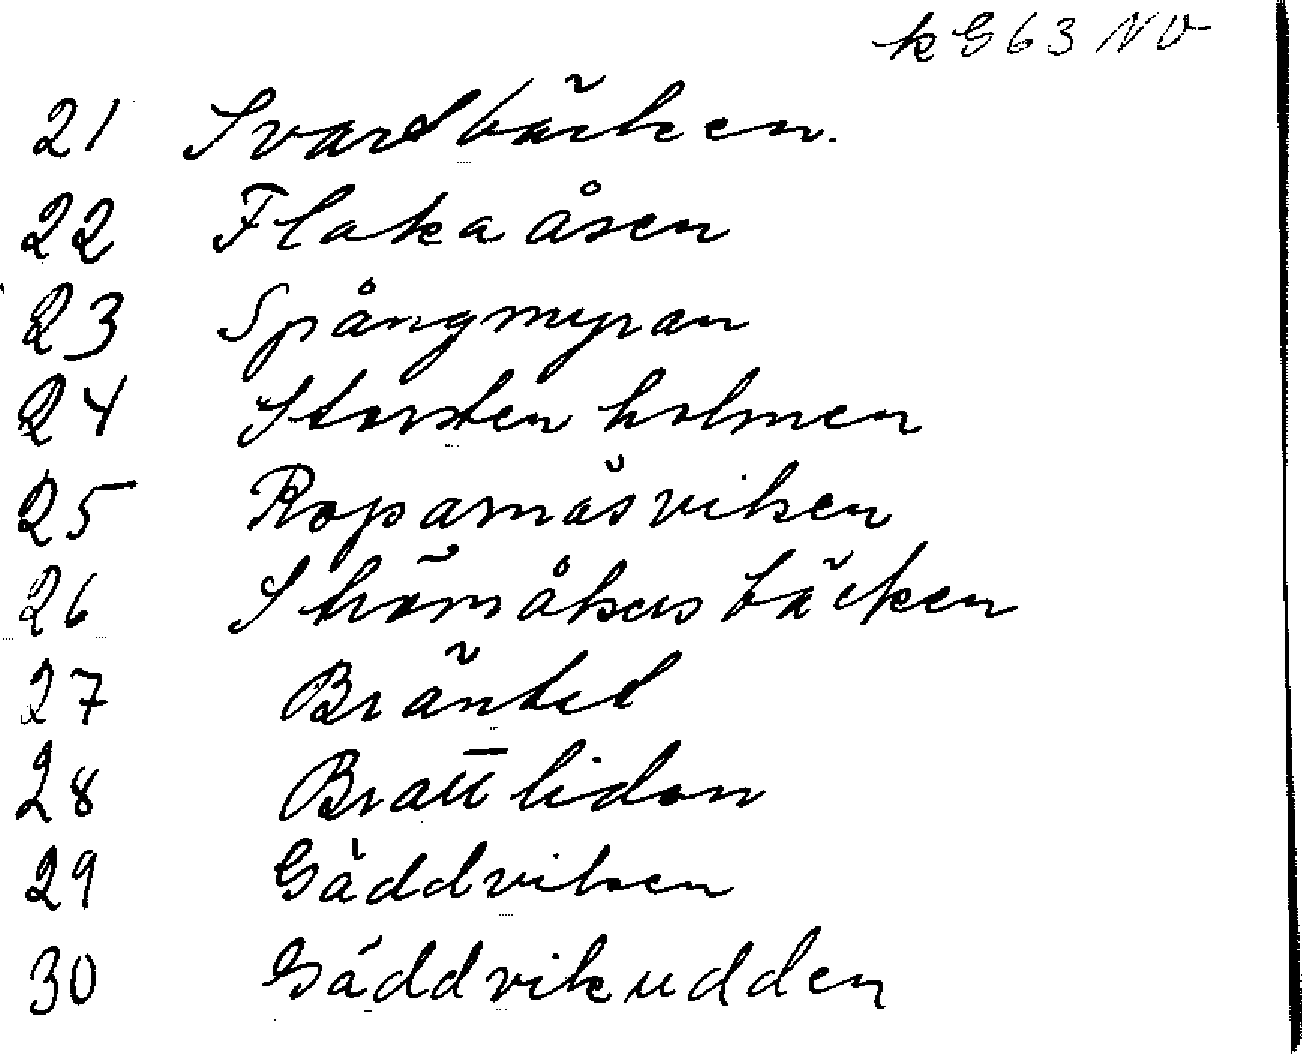 k G 63 NV
21 Svartbäcken.
22 Flakaåsen
23 Spångmyran
24 Storstenholmen
25 Roparnäsviken
26 Strömåkersbäcken
27 Bräntet
28 Brattlidon
29 Gäddviken
30 Gäddvikudden